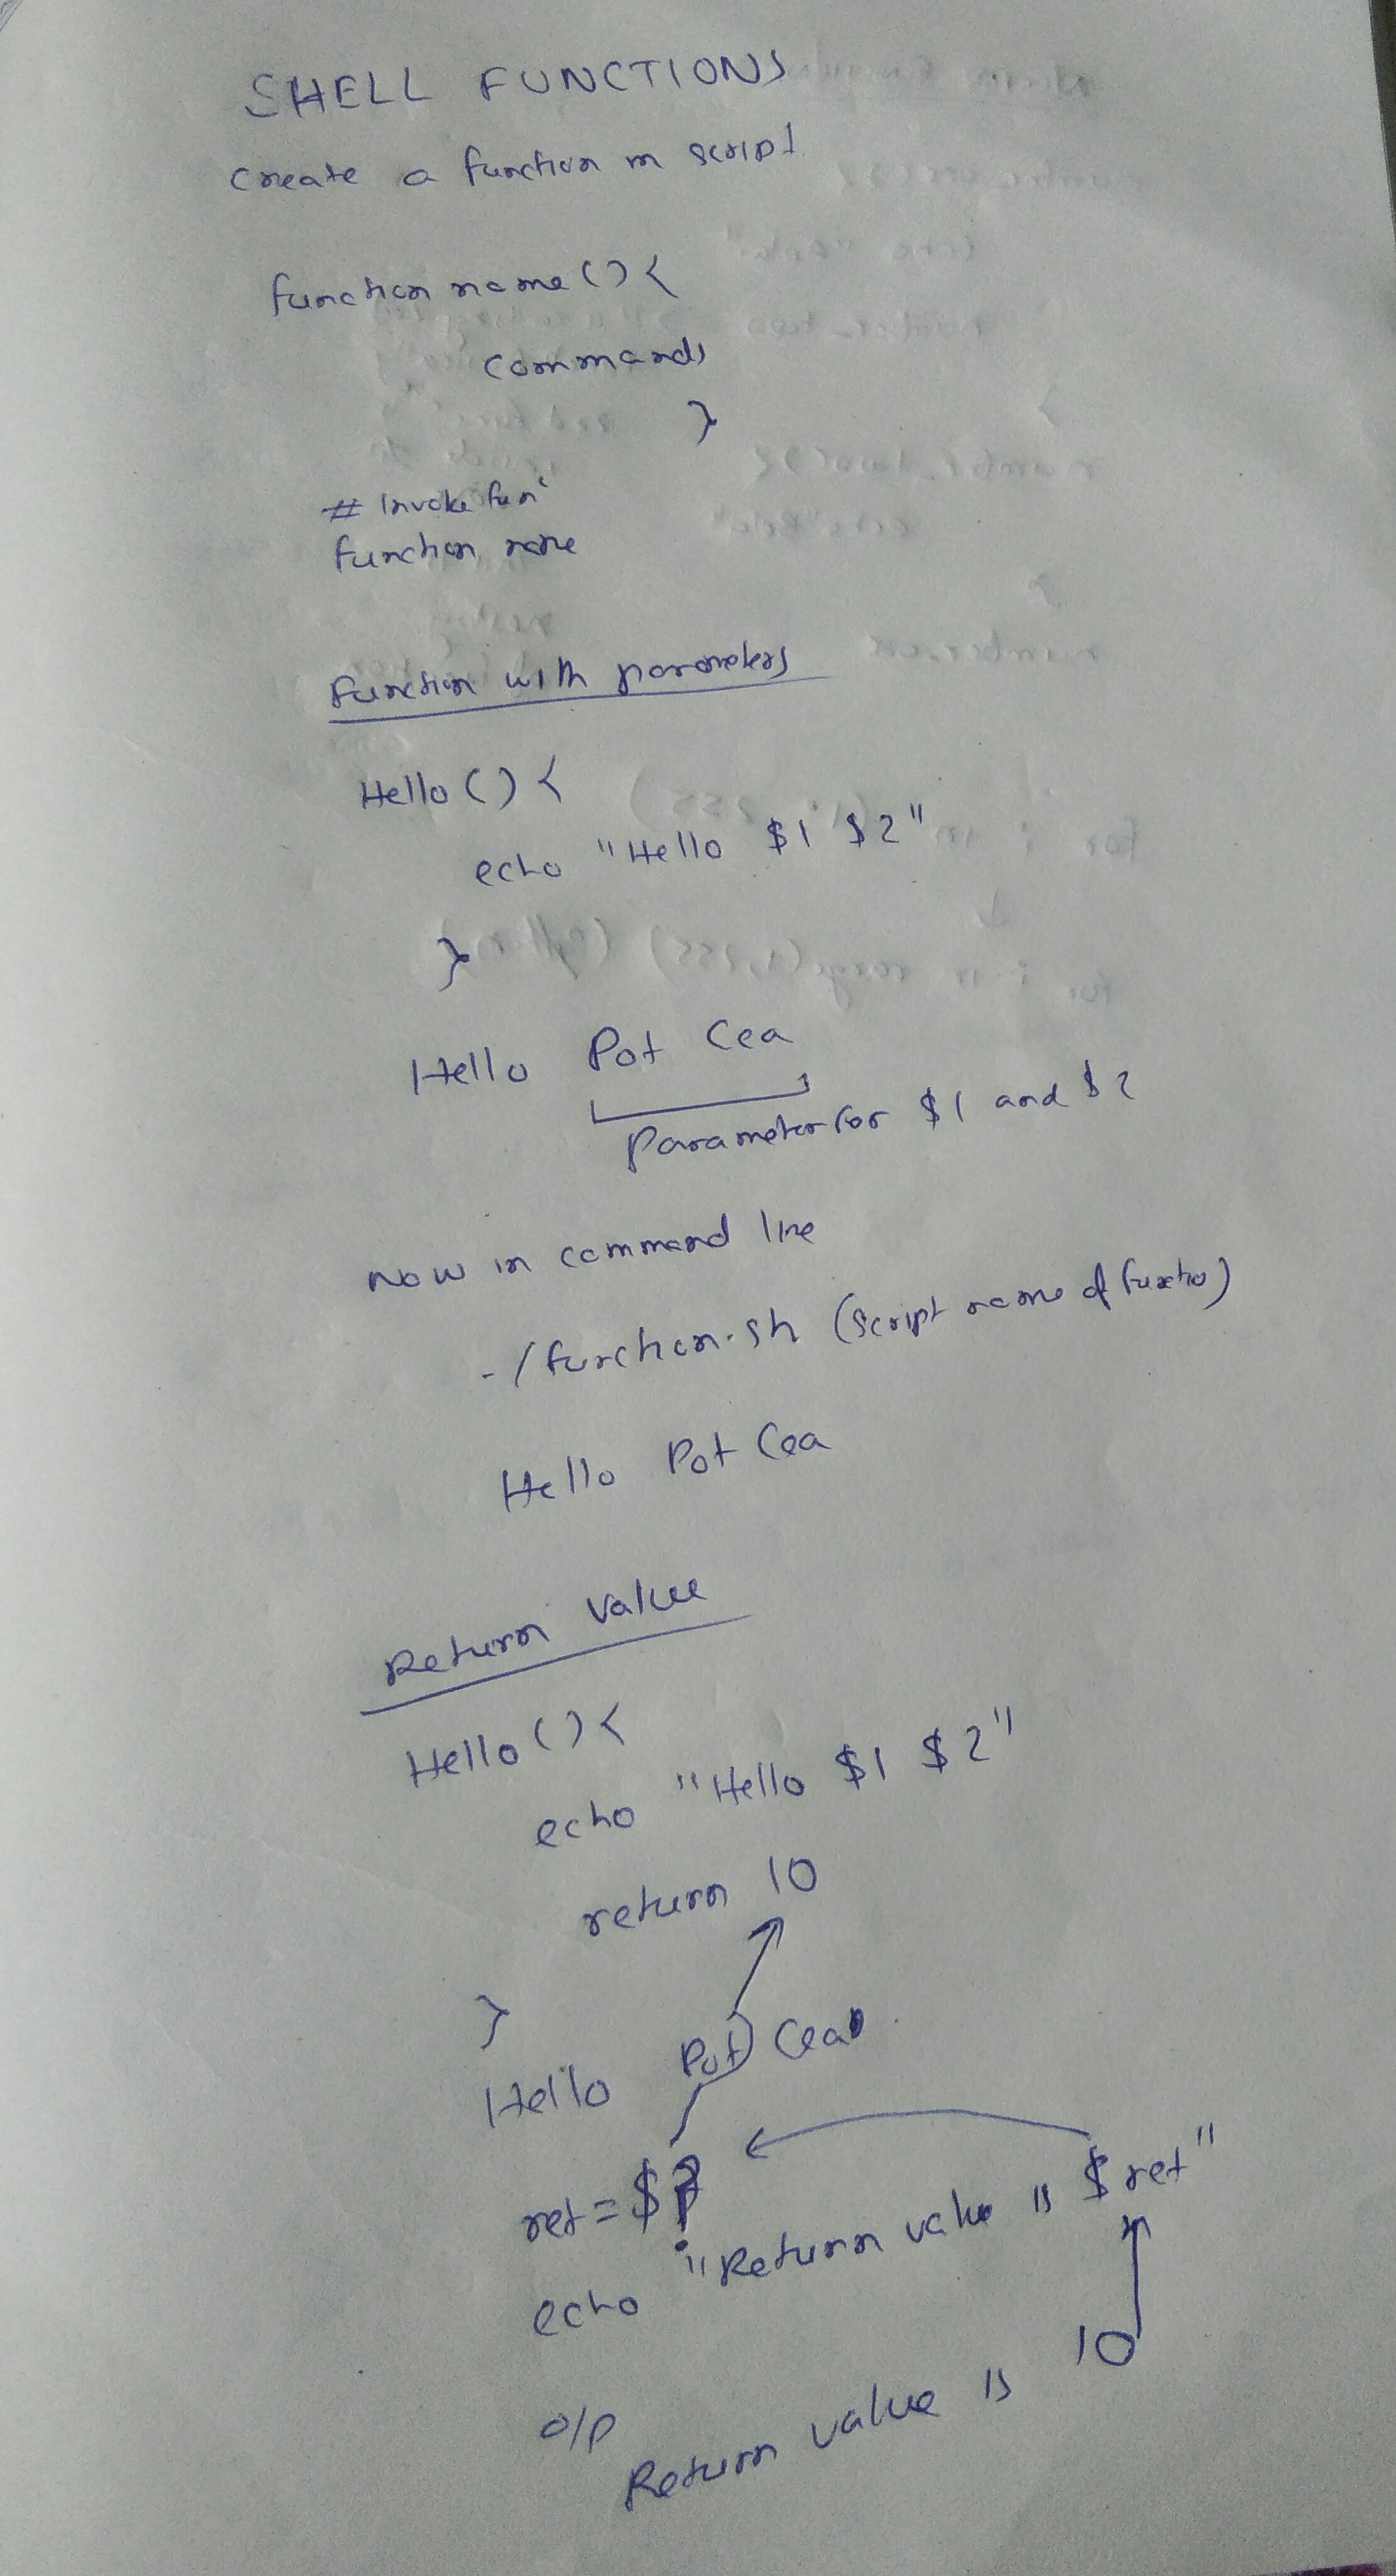 SHELL FUNCTIONS
Create a function in script
function name () {
commands
}
# Invoke fun
function name
Function with parameters
Hello () {
echo "Hello $1 $2"
}
Hello Pot Cea
Parameter for $1 and $2
Now in command line
./function.sh (script name of functio)
Hello Pot Cea
Return Value
Hello () {
echo "Hello $1 $2"
return 10
}
Hello Pot Cea
ret = $?
echo "Return value is $ret"
10
o/p
Return value is